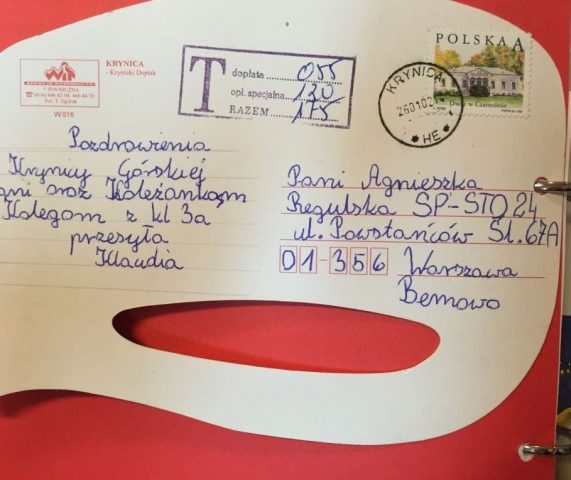 KRYNICA
- Krynicki Deptak
PIWNICZNA
W 018
T
dopłata 055
opł. specjalna 120
RAZEM 175
POLSKA A
Dwór w Czarnolesie
KRYNICA
HE
Pozdrowienia
Krynicy Górskiej
ani oraz Koleżankom
Kolegom z kl 3a
przesyła
Klaudia
Pani Agnieszka
Regulska SP-STO 24
ul. Powstańców Śl. 67A
01-356 Warszawa
Bemowo